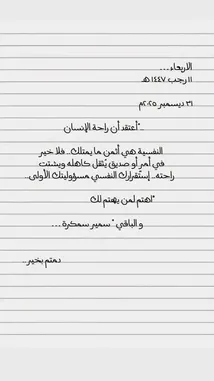 الاربعاء ...
١١ رجب ١٤٤٧ هـ
٣١ ديسمبر ٢٠٢٥م
.."أعتقد أن راحة الإنسان
النفسية هي أثمن ما يمتلك.. فلا خير
في أمر أو صديق يُثقل كاهله ويشتت
راحته.. إستقرارك النفسي مسؤوليتك الأولى..
"اهتم لمن يهتم لك
و الباقي " سمير سمكرة ...
دمتم بخير ..